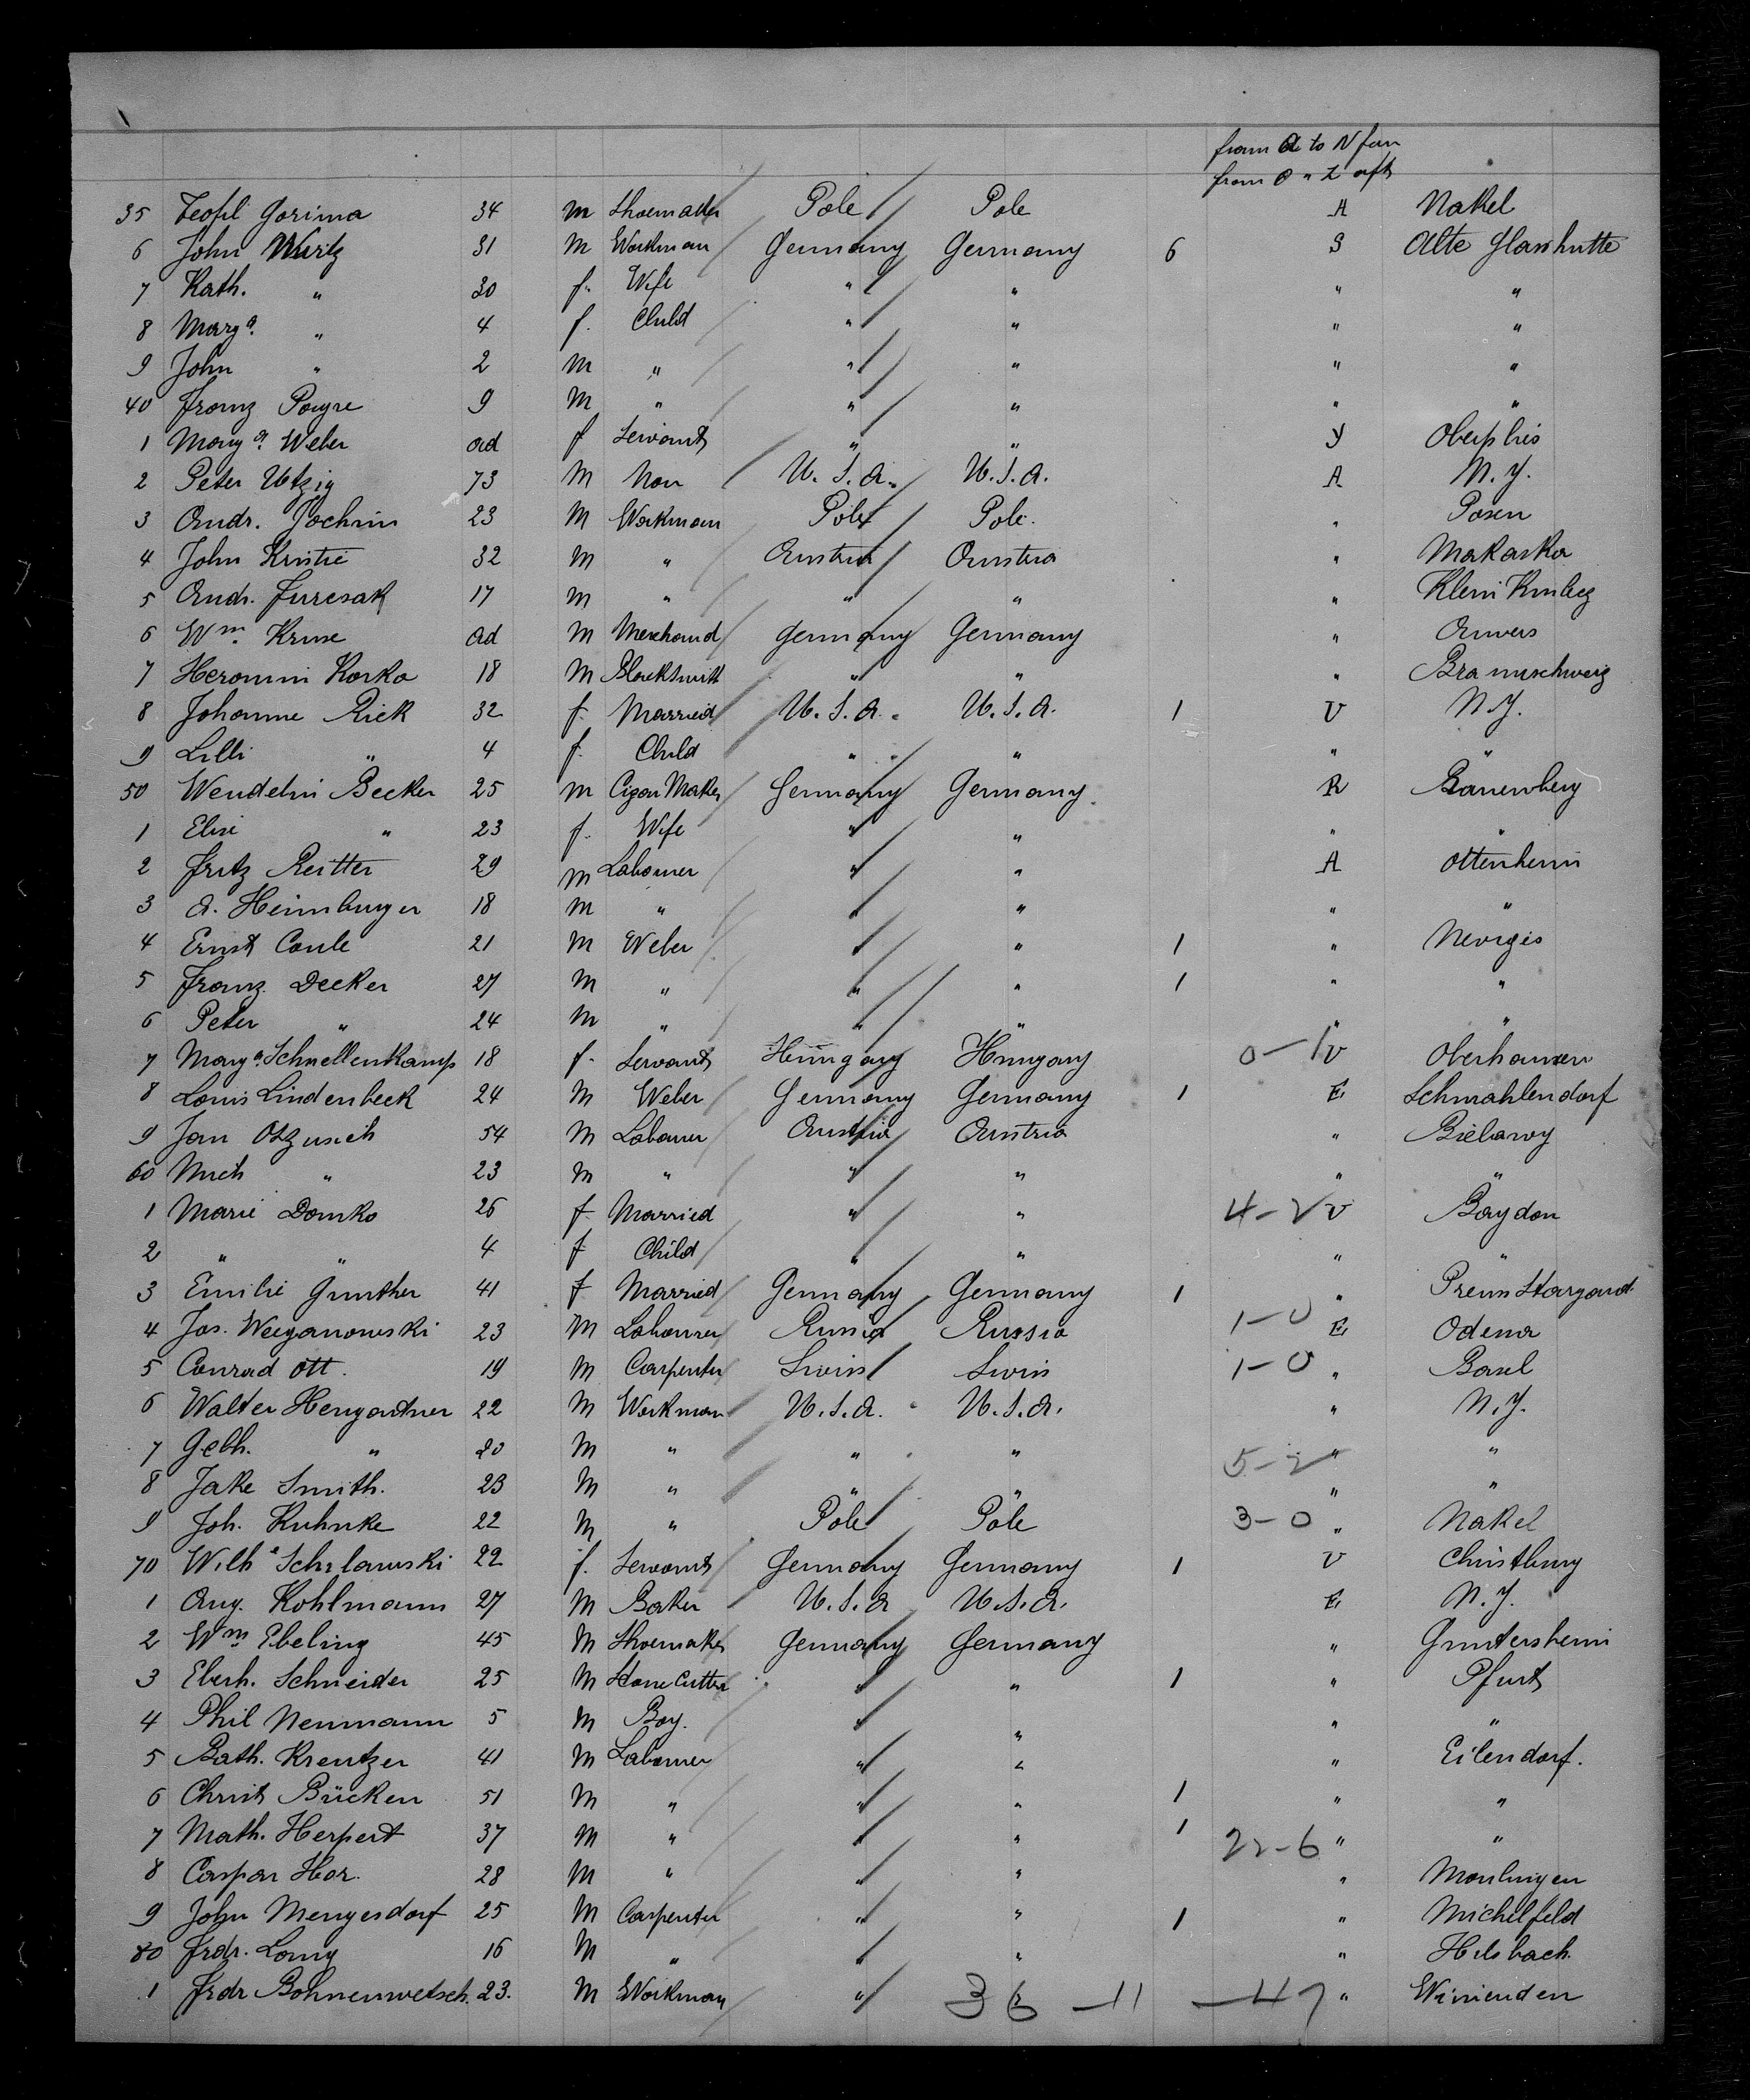 from A to N for
from O " Z aft
35 Teofil Gorima 34 M Shoemaker Pole Pole A Nakel
6 John Wuritz 31 M Workman Germany Germany 6 S Alte Glashutte
7 Kath. " 30 f. Wife " " " "
8 Marg a. " 4 f. Child " " " "
9 John " 2 M " " " " "
40 Franz Pouyre 9 M " " " " "
1 Marg a. Weber ad f Servant " " Y
2 Peter Utzig 73 M Non U.S.A. U.S.A. A N.Y.
3 Andr. Jochim 23 M Workman Pole Pole. " Posen
4 John Kristie 32 M " Austria Austria " Makaska
5 Andr. Juresak 17 M " " " " Klein
6 Wm. Kruse ad M Merchand Germany Germany " Anvers
7 Heromin Korka 18 M Blacksmith " " " Braunschweig
8 Johanne Rick 32 f. Married U.S.A. U.S.A. 1 V N.Y.
9 Lilli " 4 f. Child " " " "
50 Wendelin Becker 25 M Cigar Maker Germany Germany R
1 Elise " 23 f. Wife " " " "
2 Fritz Reitter 29 M Labourer " " A Ottenheim
3 A. Heimburger 18 M " " " " "
4 Ernst Coule 21 M Weber " " 1 " Neviges
5 Franz Decker 27 M " " " 1 " "
6 Peter " 24 M " " " " "
7 Marg a. Schnellenkamp 18 f. Servant Hungary Hungary 0-1 V Oberhausen
8 Louis Lindenbeck 24 M Weber Germany Germany 1 E Schmahlendorf
9 Jan 54 M Labourer Austria Austria " Bielawy
60 Mich " 23 M " " " " "
1 Marie Domko 26 f Married " " 4-2 V Boydon
2 " " 4 f Child " " " "
3 Emilie Gunther 41 f Married Germany Germany 1 " Preuss Stargard.
4 Jos. Weeganowski 23 M Labourer Russia Russia 1-0 E Odema
5 Conrad Ott. 19 M Carpenter Swiss Swiss 1-0 " Basel
6 Walter Hengartner 22 M Workman U.S.A. U.S.A. " N.Y.
7 Gebh. " 20 M " " " 5-2 " "
8 Jake Smith. 23 M " " " " "
9 Joh. Kuhnke 22 M " Pole Pole 3-0 " Nakel
70 Wilh a Schilawski 22 f. Servant Germany Germany 1 V Christburg
1 Aug. Kohlmann 27 M Baker U.S.A U.S.A. E N.Y.
2 Wm. Ebeling 45 M Shoemaker Germany Germany " Guntersheim
3 Eberh. Schneider 25 M Stone Cutter " " 1 " Pfurt
4 Phil Neumann 5 M Boy. " " " "
5 Bath. Kreutzer 41 M Labourer " " " Eilendorf.
6 Christ Bücken 51 M " " " 1 " "
7 Math. Herpert 37 M " " " 1 22-6 " "
8 Caspar Hor. 28 M " " " " Moulingen
9 John Mengesdorf 25 M Carpenter " " 1 " Michelfeld
80 Frdr. Lang 16 M " " " " Hilsbach.
1 Frdr Bohnenwetsch. 23. M Workman " " 36 - 11 - 47 " Winienden